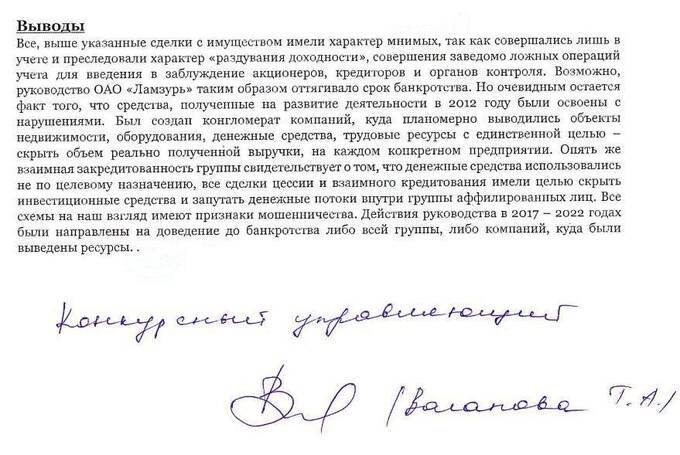 Выводы
Все, выше указанные сделки с имуществом имели характер мнимых, так как совершались лишь в
учете и преследовали характер «раздувания доходности», совершения заведомо ложных операций
учета для введения в заблуждение акционеров, кредиторов и органов контроля. Возможно,
руководство ОАО «Ламзурь» таким образом оттягивало срок банкротства. Но очевидным остается
факт того, что средства, полученные на развитие деятельности в 2012 году были освоены с
нарушениями. Был создан конгломерат компаний, куда планомерно выводились объекты
недвижимости, оборудования, денежные средства, трудовые ресурсы с единственной целью –
скрыть объем реально полученной выручки, на каждом конкретном предприятии. Опять же
взаимная закредитованность группы свидетельствует о том, что денежные средства использовались
не по целевому назначению, все сделки цессии и взаимного кредитования имели целью скрыть
инвестиционные средства и запутать денежные потоки внутри группы аффилированных лиц. Все
схемы на наш взгляд имеют признаки мошенничества. Действия руководства в 2017 – 2022 годах
были направлены на доведение до банкротства либо всей группы, либо компаний, куда были
выведены ресурсы. .
Конкурсный управляющий
(Ваганова Т.А.)